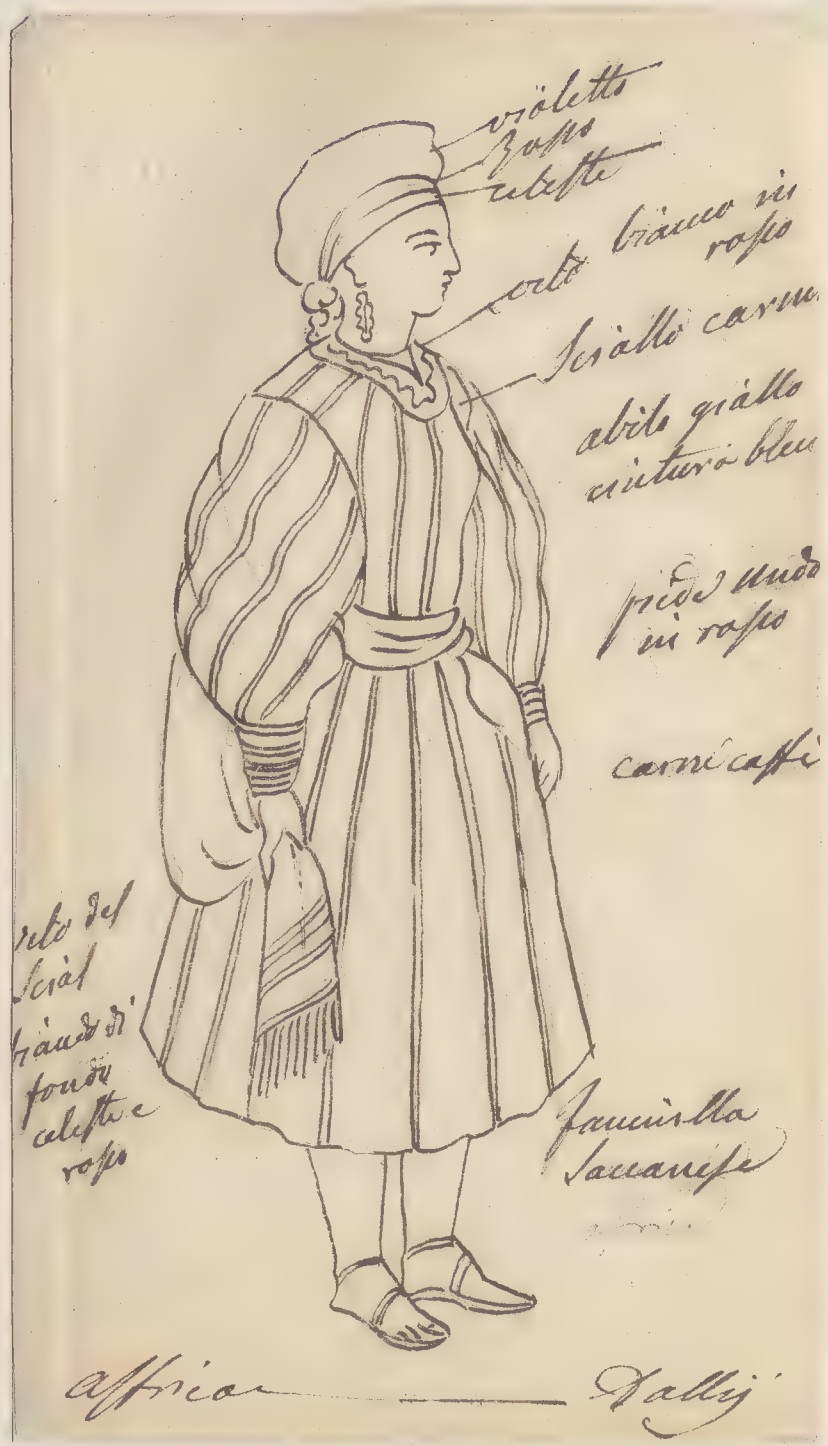 violetto
Rosso
celeste
velo bianco in
rosso
Sciallo carm
abito giallo
cintura bleu
piede nudo
in rosso
carni caffè
velo del
Scial
bianco di
fondo
celeste e
rosso
Fanciulla
affrica